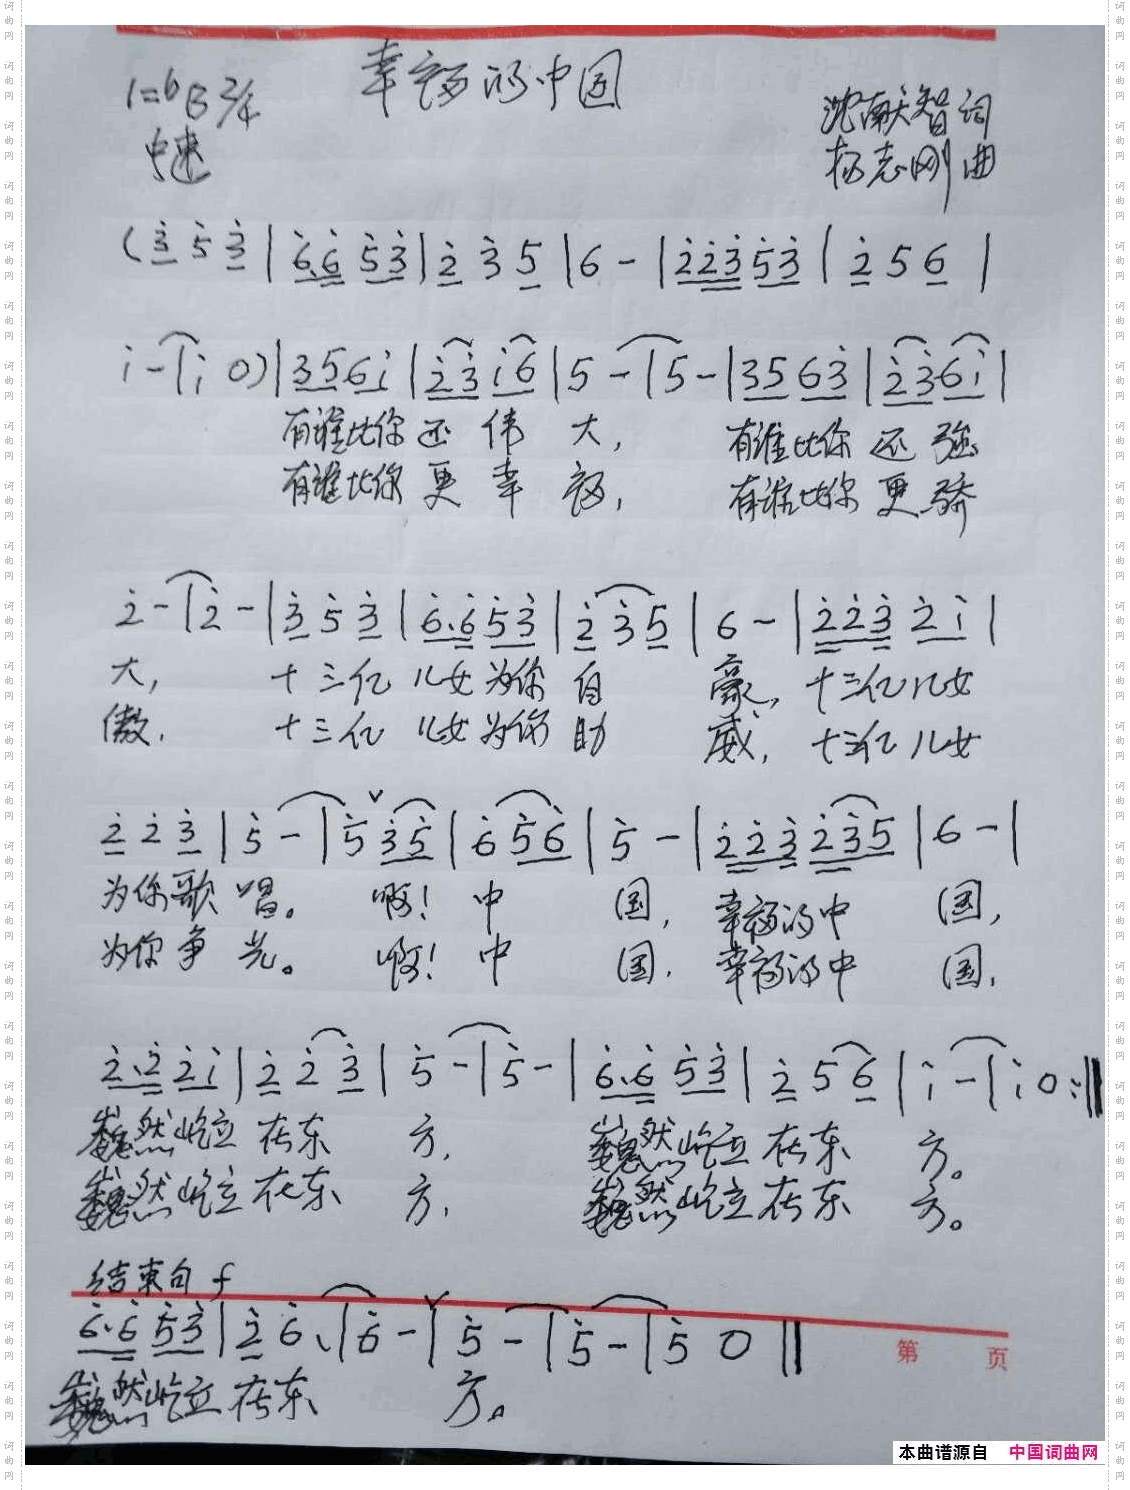 幸福的中国
1=♭B 2/4
中速
沈献智词
杨志刚曲
(3̇ 5̇ 3̇ | 6̇.6̇ 5̇3̇ | 2̇ 3̇ 5 | 6 - | 2̇2̇3̇ 5̇3̇ | 2̇ 5 6 |
1̇ - | 1̇ 0) | 3561̇ | 2̇3̇1̇6 | 5 - | 5 - | 3563̇ | 2̇3̇61̇ |
有谁比你 还 伟 大, 有谁比你 还 强
有谁比你 更 幸 福, 有谁比你 更 骄
2̇ - | 2̇ - | 3̇ 5̇ 3̇ | 6̇.6̇5̇3̇ | 2̇ 3̇5 | 6 - | 2̇2̇3̇ 2̇1̇ |
大, 十三亿 儿女为你 自 豪, 十三亿儿女
傲, 十三亿 儿女为你 助 威, 十三亿儿女
2̇ 2̇ 3̇ | 5̇ - | 5̇ v 3̇5̇ | 6̇ 5̇6̇ | 5̇ - | 2̇2̇3̇ 2̇3̇5 | 6 - |
为你歌 唱。 啊! 中 国, 幸福的中 国,
为你争 光。 啊! 中 国, 幸福的中 国,
2̇.2̇ 2̇1̇ | 2̇ 2̇ 3̇ | 5̇ - | 5̇ - | 6̇.6̇ 5̇3̇ | 2̇ 5 6 | 1̇ - | 1̇ 0 :||
巍然屹立 在东 方, 巍然屹立 在东 方。
巍然屹立 在东 方, 巍然屹立 在东 方。
结束句 f
6̇.6̇ 5̇3̇ | 2̇ 6̇. | 6̇ - | v 5̇ - | 5̇ - | 5̇ 0 ||
巍然屹立 在东 方。
第 页
本曲谱源自 中国词曲网